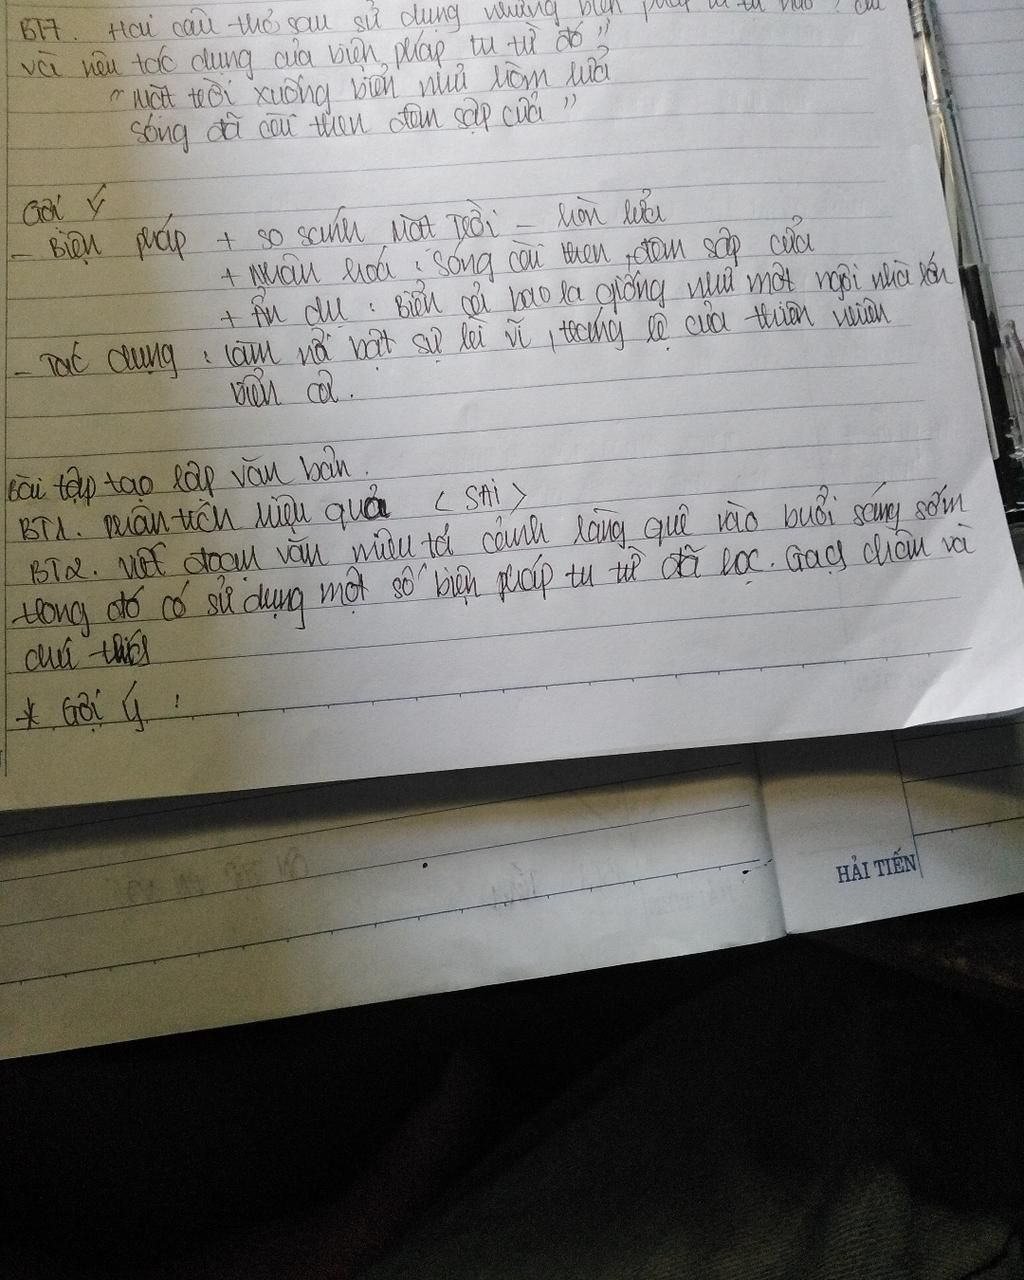 BT7. Hai câu thơ sau sử dụng những biện pháp tu từ nào,
và nêu tác dụng của biện pháp tu từ đó"
"Mặt trời xuống biển như hòn lửa
Sóng đã cài then đêm sập cửa"
Gợi ý
- Biện pháp + so sánh Mặt Trời - hòn lửa
+ Nhân hoá: Sóng cài then, đêm sập cửa
+ Ẩn dụ: Biển cả bao la giống như một ngôi nhà lớn
- Tác dụng: làm nổi bật sự kì vĩ, tráng lệ của thiên nhiên
biển cả.
Bài tập tạo lập văn bản.
BT1. Phân tích hiệu quả (SAI)
BT2. Viết đoạn văn miêu tả cảnh làng quê vào buổi sáng sớm
trong đó có sử dụng một số biện pháp tu từ đã học. Gạch chân và
chú thích
* Gợi ý:
HẢI TIẾN